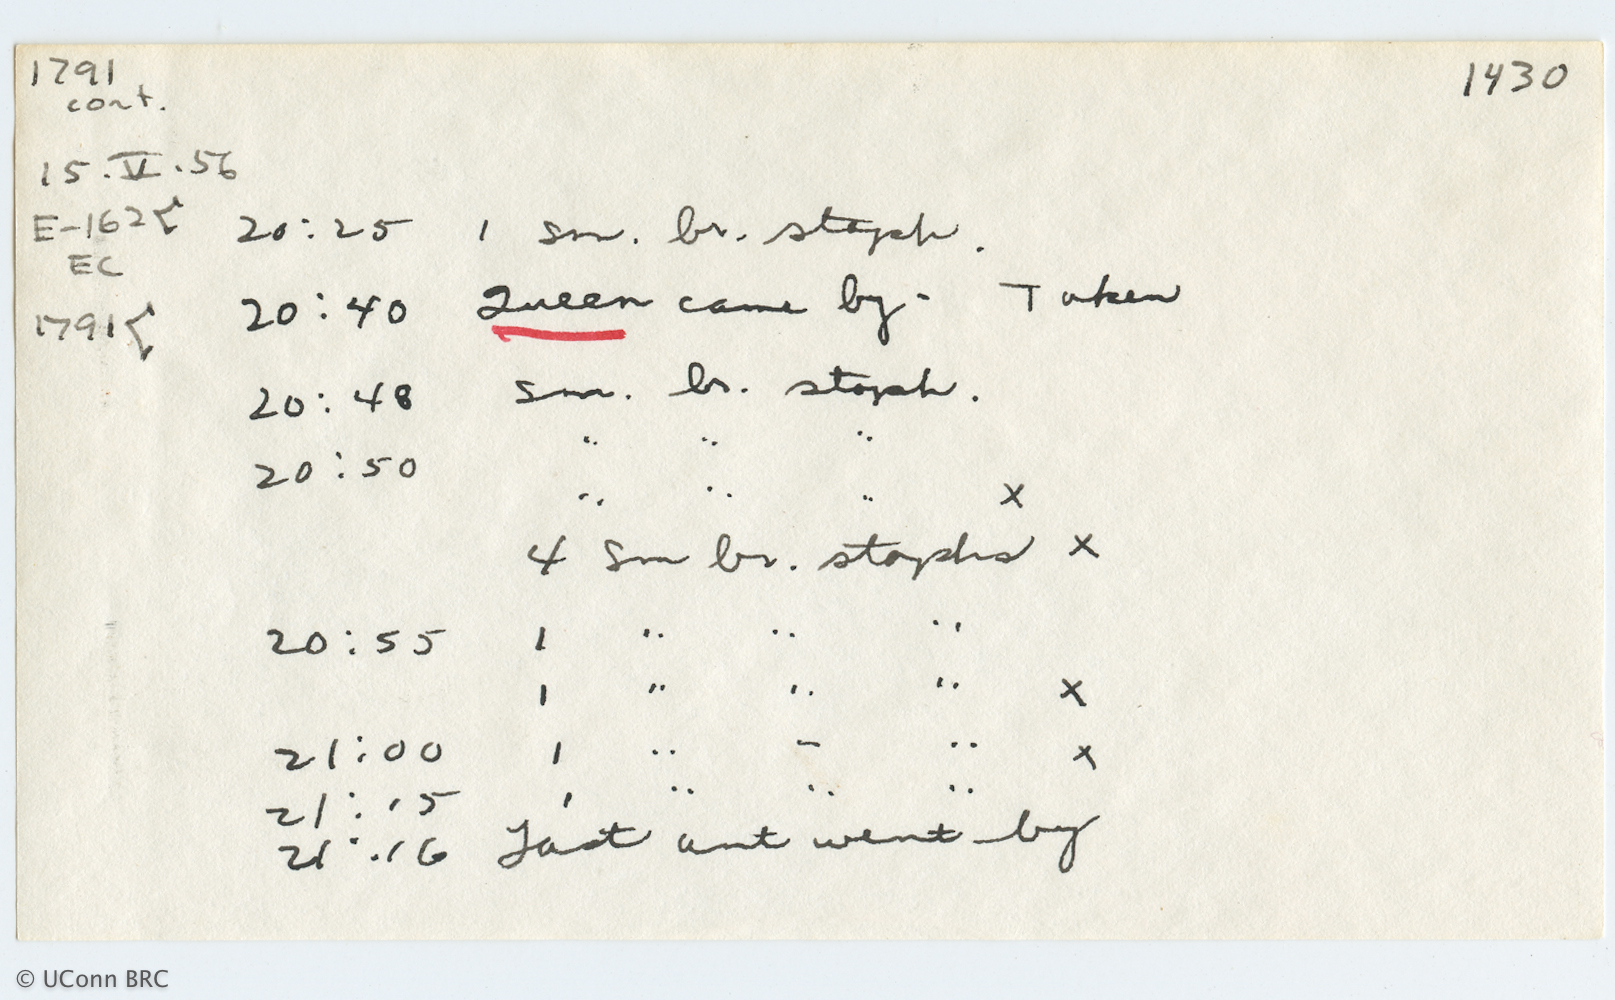 1791 1430
cont.
15.V.56
E-162{ 20:25 1 sm. br. staph.
EC
1791{ 20:40 Queen came by - Taken
20:48 sm. br. staph.
" " "
20:50
" " " x
4 sm br. staphs x
20:55 1 " " "
1 " " " x
21:00 1 " " " x
21:15 1 " " "
21:16 Last ant went by
© UConn BRC